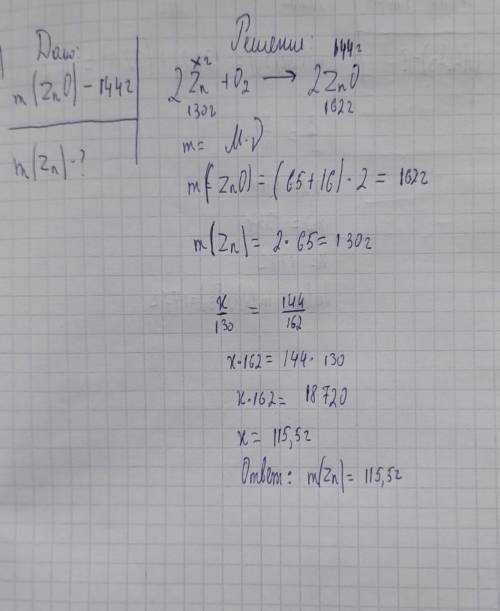 Дано:
m(ZnO) - 144г
m(Zn) - ?
Решение
xг 144г
2Zn + O2 → 2ZnO
130г 162г
m = M·ν
m(ZnO) = (65+16)·2 = 162г
m(Zn) = 2·65 = 130г
x/130 = 144/162
x·162 = 144·130
x·162 = 18720
x = 115,5г
Ответ: m(Zn) = 115,5г